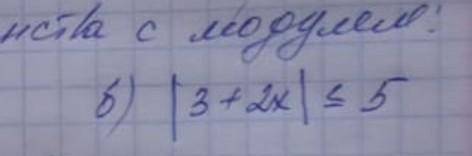 нства с модулем:
б) |3 + 2x| ≤ 5